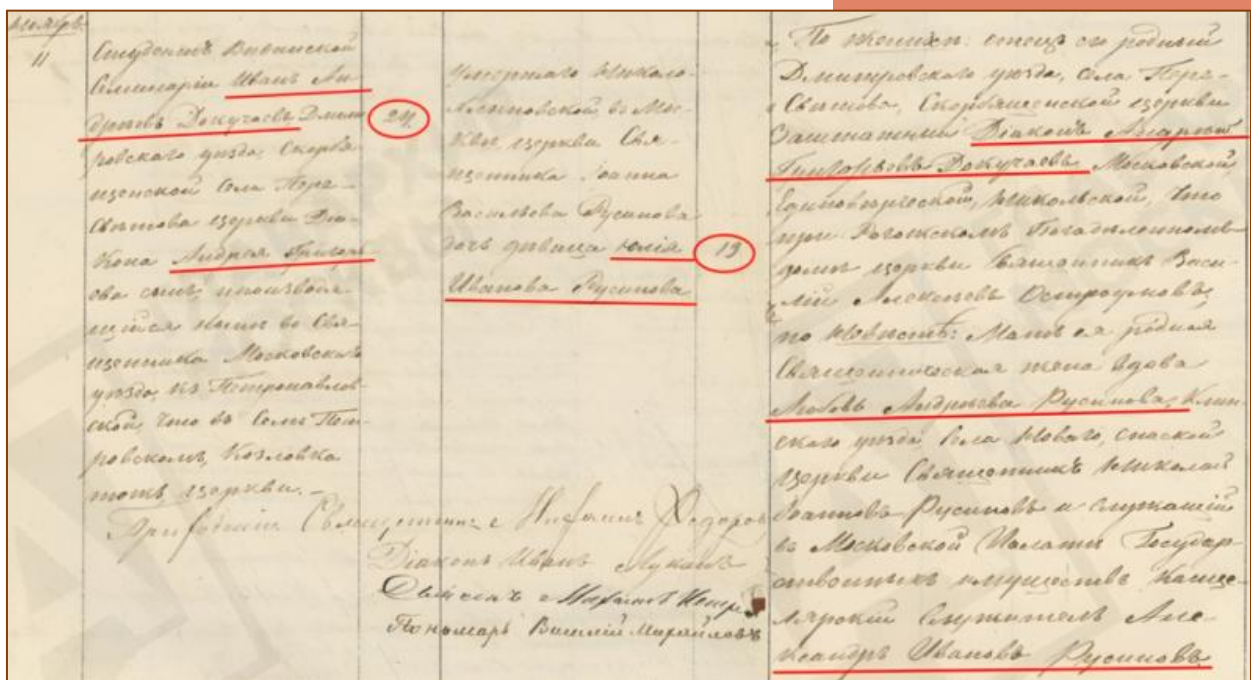 Ноября
11
Студентъ Виѳанской
Семинаріи Иванъ Ан-
дреевъ Докучаевъ Дмит
ровскаго уѣзда, Скорбя-
щенской села Пере-
свѣтова церкви Діа-
кона Андрея Григорь
ева сынъ, производя
щійся нынѣ во Свя-
щенника Московскаго
уѣзда, къ Петропавлов-
ской, что въ селѣ Пет-
ровскомъ, Козловка
тожъ, церкви. –
24
Умершаго Николо-
въ Мос-
квѣ, церкви Свя-
щенника Іоанна
Васильева Русинова
дочь дѣвица Юлія
Иванова Русинова
19
По женихѣ: отецъ его родный
Дмитровскаго уѣзда, села Пере-
свѣтова, Скорбященской церкви
Заштатный Діаконъ Андрей
Григорьевъ Докучаевъ, Московской
Единовѣрческой, Никольской, что
при Рогожскомъ Богадѣленномъ
домѣ церкви Священникъ Васи-
лій Алексѣевъ Остроумовъ;
по Невѣстѣ: Мать ея родная
Священническая жена вдова
Любовь Андреева Русинова, Клин-
скаго уѣзда, села Новаго, Спаской
церкви Священникъ Николай
Іоанновъ Русиновъ и служащій
въ Московской Палатѣ Государ-
ственныхъ имуществъ Канце-
лярскій Служитель Але-
ксандръ Ивановъ Русиновъ.
Приходскій Священникъ Ѳедоров
Діаконъ Иванъ
Дьячекъ
Пономарь Василій Михайловъ